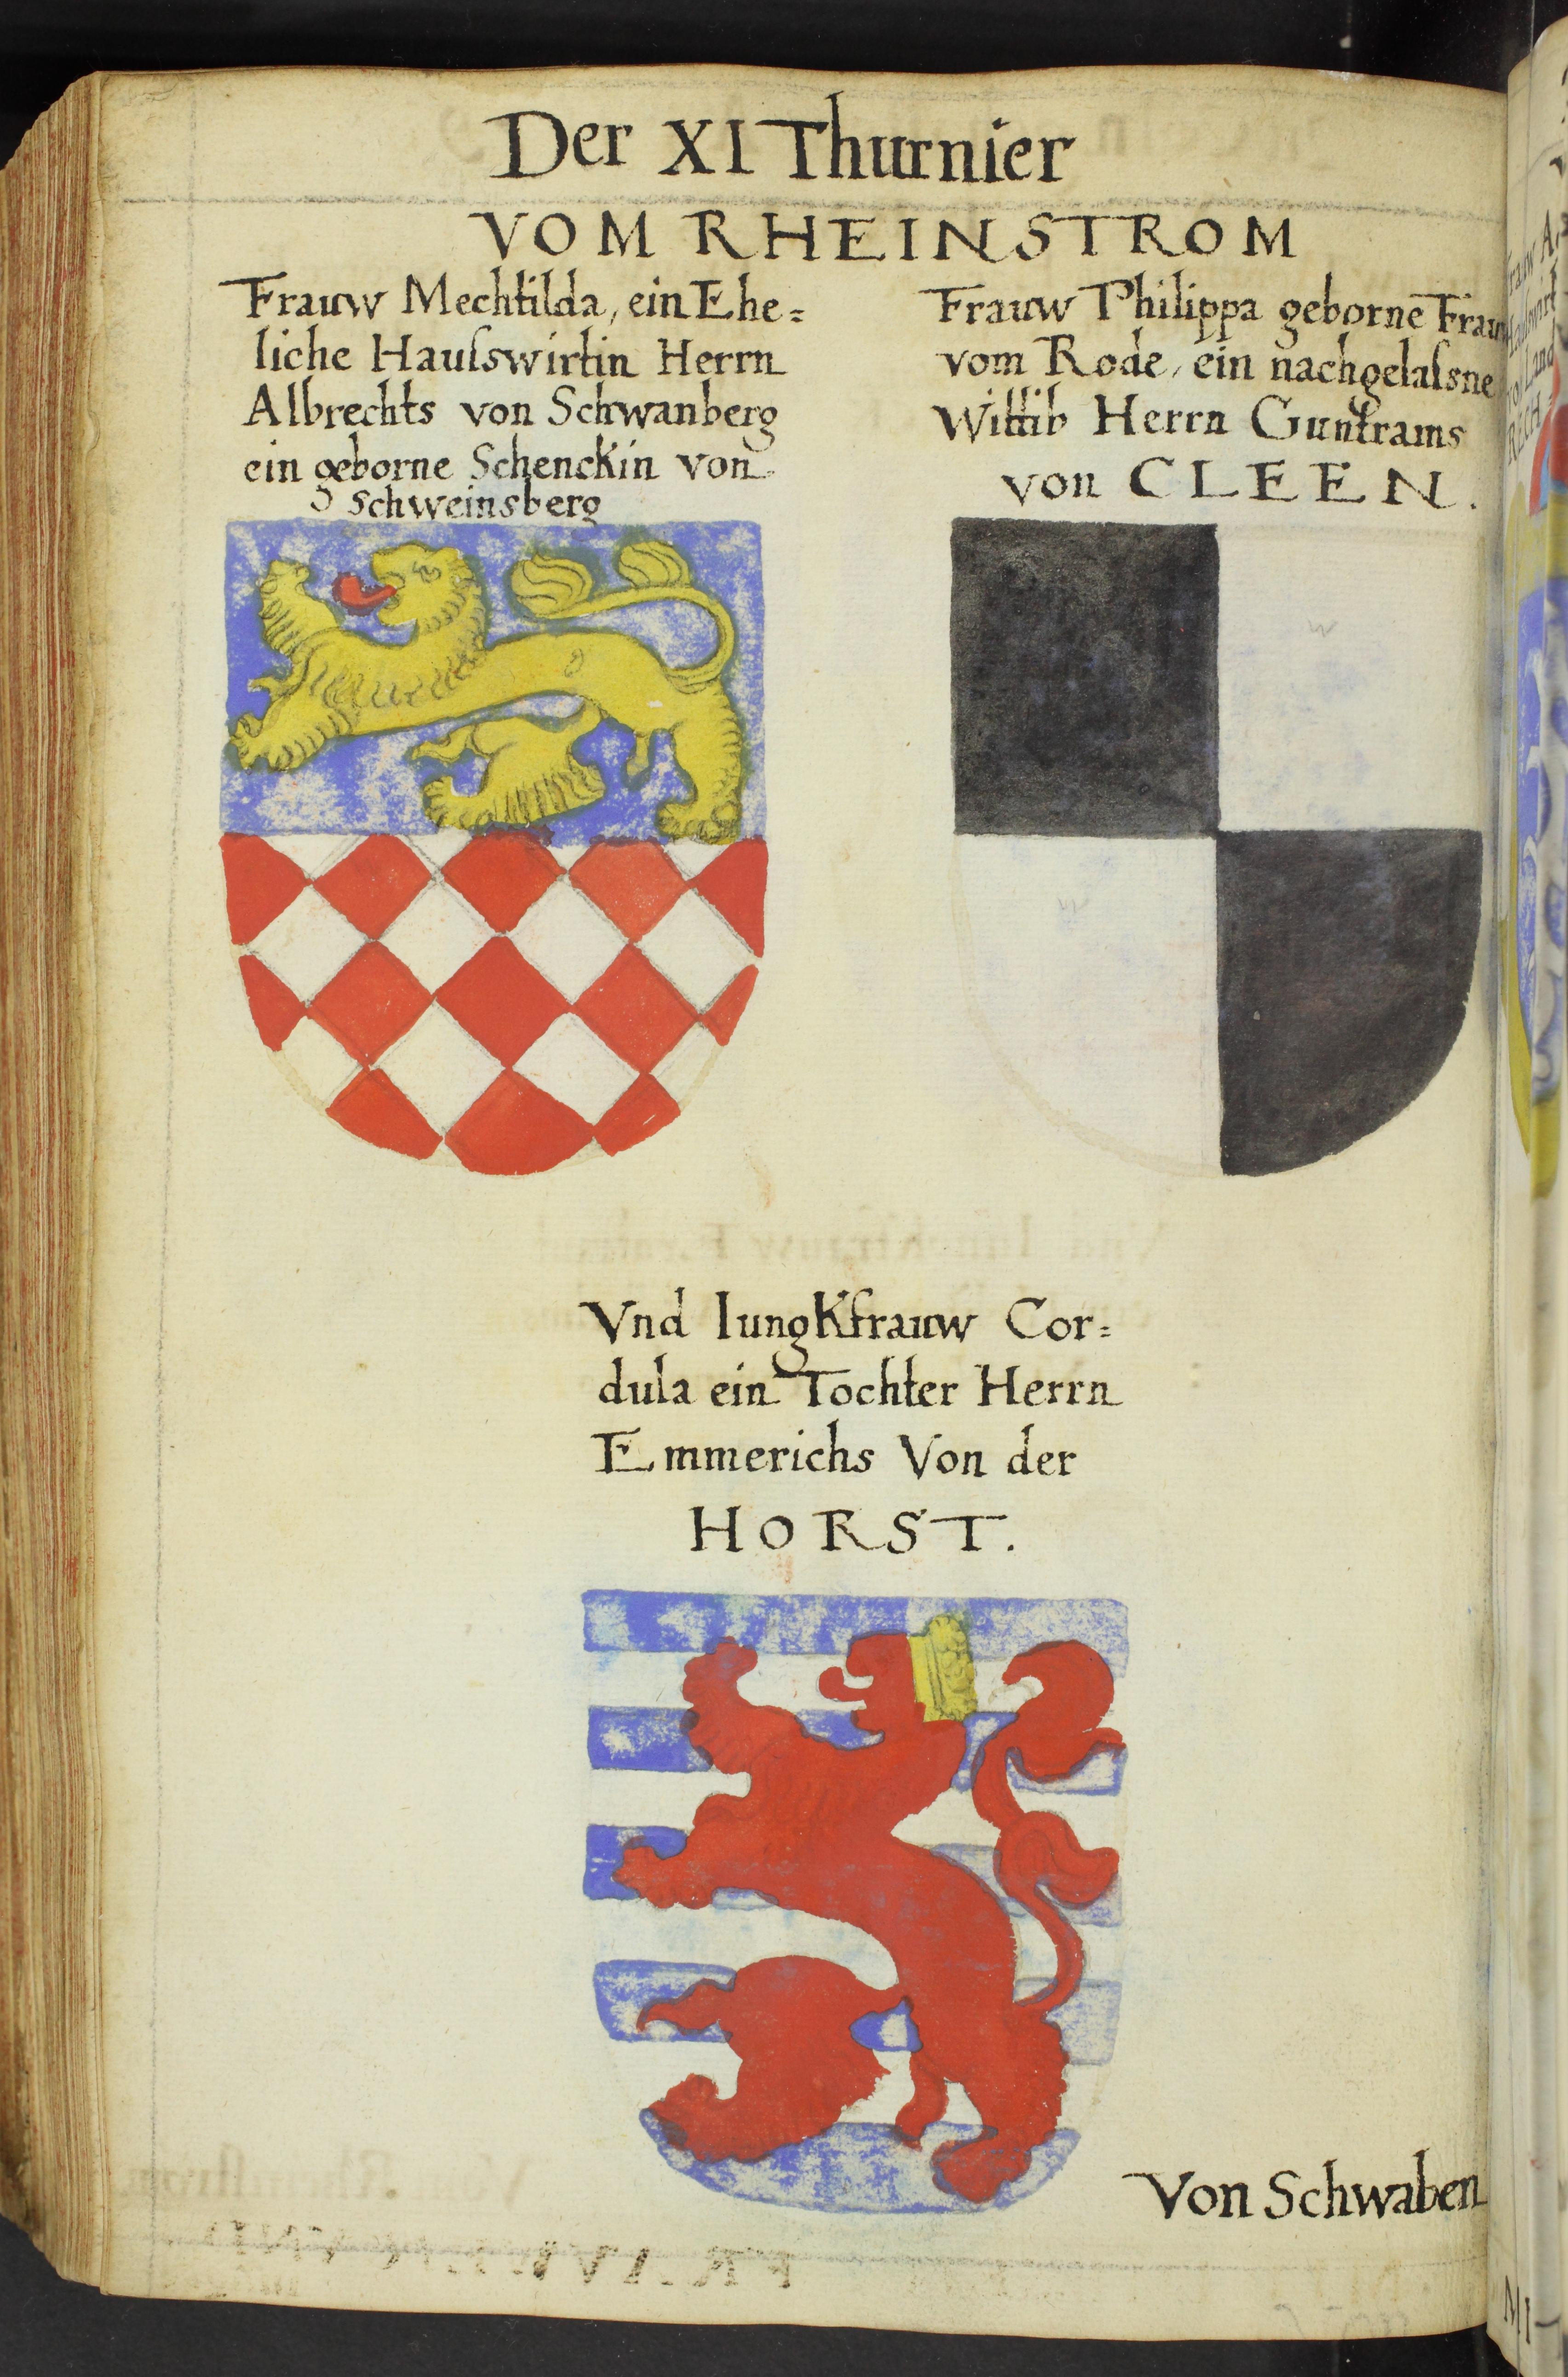 Der XI Thurnier
VOM RHEINSTROM
Frauw Mechtilda, ein Ehe=
liche Hauſswirtin Herrn
Albrechts von Schwanberg
ein geborne Schenckin von
Schweinsberg
Frauw Philippa geborne Frauw
vom Rode, ein nachgelaſsne
Wittib Herrn Guntrams
von CLEEN.
Vnd Iungkfrauw Cor=
dula ein Tochter Herrn
Emmerichs Von der
HORST.
Von Schwaben